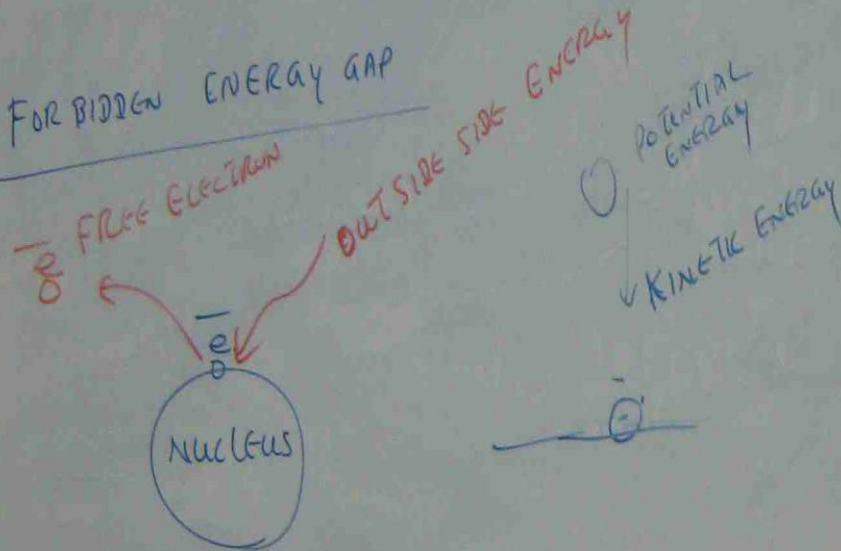 FORBIDDEN ENERGY GAP
e FREE ELECTRON
OUT SIDE SIDE ENERGY
POTENTIAL
ENERGY
KINETIC ENERGY
e
NUCLEUS